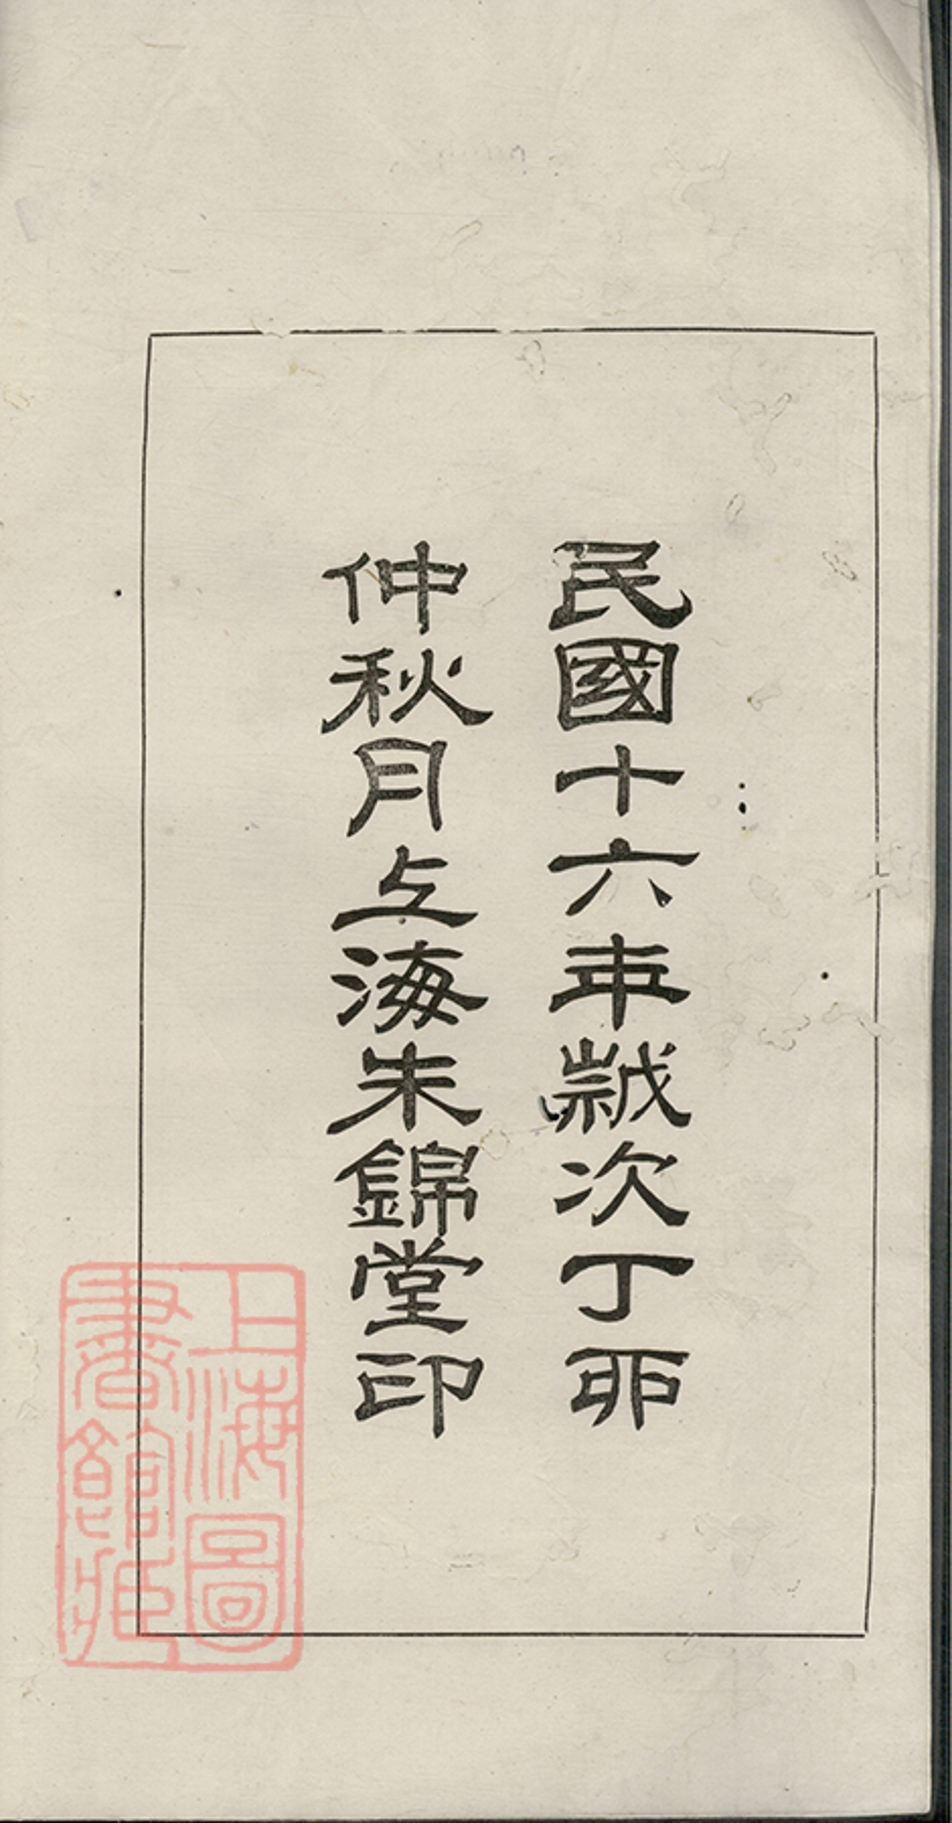 民國十六年歲次丁卯
仲秋月上海朱錦堂印
上海圖
書館藏